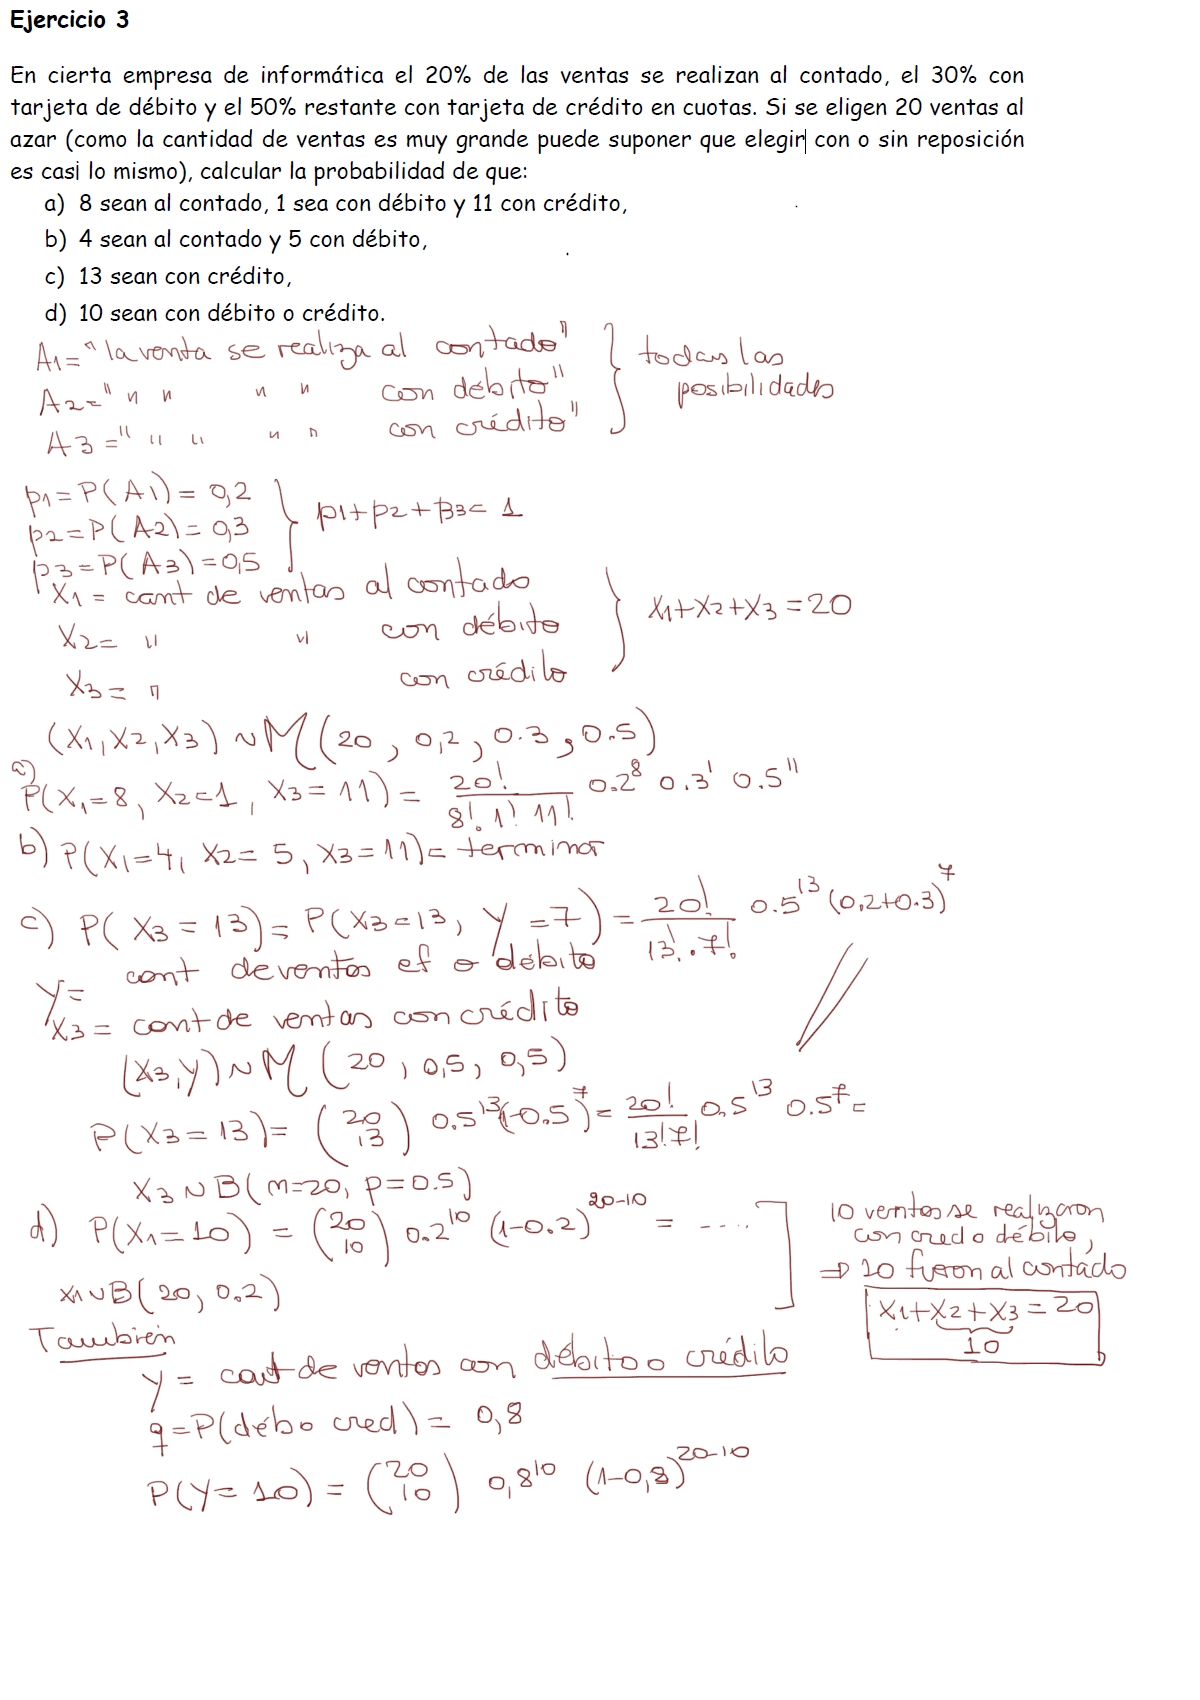 Ejercicio 3
En cierta empresa de informática el 20% de las ventas se realizan al contado, el 30% con
tarjeta de débito y el 50% restante con tarjeta de crédito en cuotas. Si se eligen 20 ventas al
azar (como la cantidad de ventas es muy grande puede suponer que elegir con o sin reposición
es casi lo mismo), calcular la probabilidad de que:
a) 8 sean al contado, 1 sea con débito y 11 con crédito,
b) 4 sean al contado y 5 con débito,
c) 13 sean con crédito,
d) 10 sean con débito o crédito.
A1= "la venta se realiza al contado" } todas las
A2= " " " " " con débito" posibilidades
A3 = " " " " " con crédito"
p1 = P(A1) = 0,2
p2 = P(A2) = 0,3 } p1+p2+p3 = 1
p3 = P(A3) = 0,5
X1 = cant de ventas al contado
X2 = " " con débito } X1+X2+X3 = 20
X3 = " con crédito
(X1, X2, X3) ~ M(20, 0,2, 0.3, 0.5)
a) P(X1=8, X2=1, X3=11) = 20!/(8! 1! 11!) 0.2^8 0.3^1 0.5^11
b) P(X1=4, X2=5, X3=11) = terminar
c) P(X3 = 13) = P(X3=13, Y=7) = 20!/(13! . 7!) 0.5^13 (0,2+0.3)^7
Y= cant de ventas ef o débito
X3 = cant de ventas con crédito
(X3, Y) ~ M(20, 0,5, 0,5)
P(X3 = 13) = (20 13) 0.5^13 (1-0.5)^7 = 20!/(13! 7!) 0.5^13 0.5^7 =
X3 ~ B(n=20, p=0.5)
d) P(X1=10) = (20 10) 0.2^10 (1-0.2)^20-10 = ....
X1 ~ B(20, 0.2)
10 ventas se realizaron
con cred o débito,
⇒ 10 fueron al contado
X1+X2+X3 = 20
10
También
Y = cant de ventas con débito o crédito
q = P(déb o cred) = 0,8
P(Y= 10) = (20 10) 0,8^10 (1-0,8)^20-10